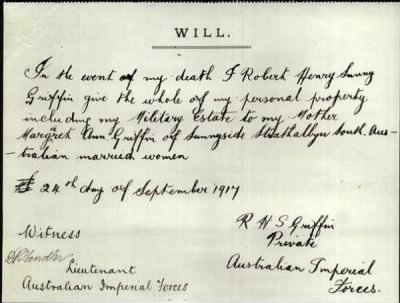 WILL.
In the event of my death I Robert Henry Sunny
Griffin give the whole of my personal property
including my Military Estate to my Mother
Margret Ann. Griffin of Sunnyside Strathallyn South. Aus-
-tralian married women
24th day of September 1917
Witness
R H S Griffin
Private
Lieutenant
Australian Imperial Forces
Australian Imperial
Forces.